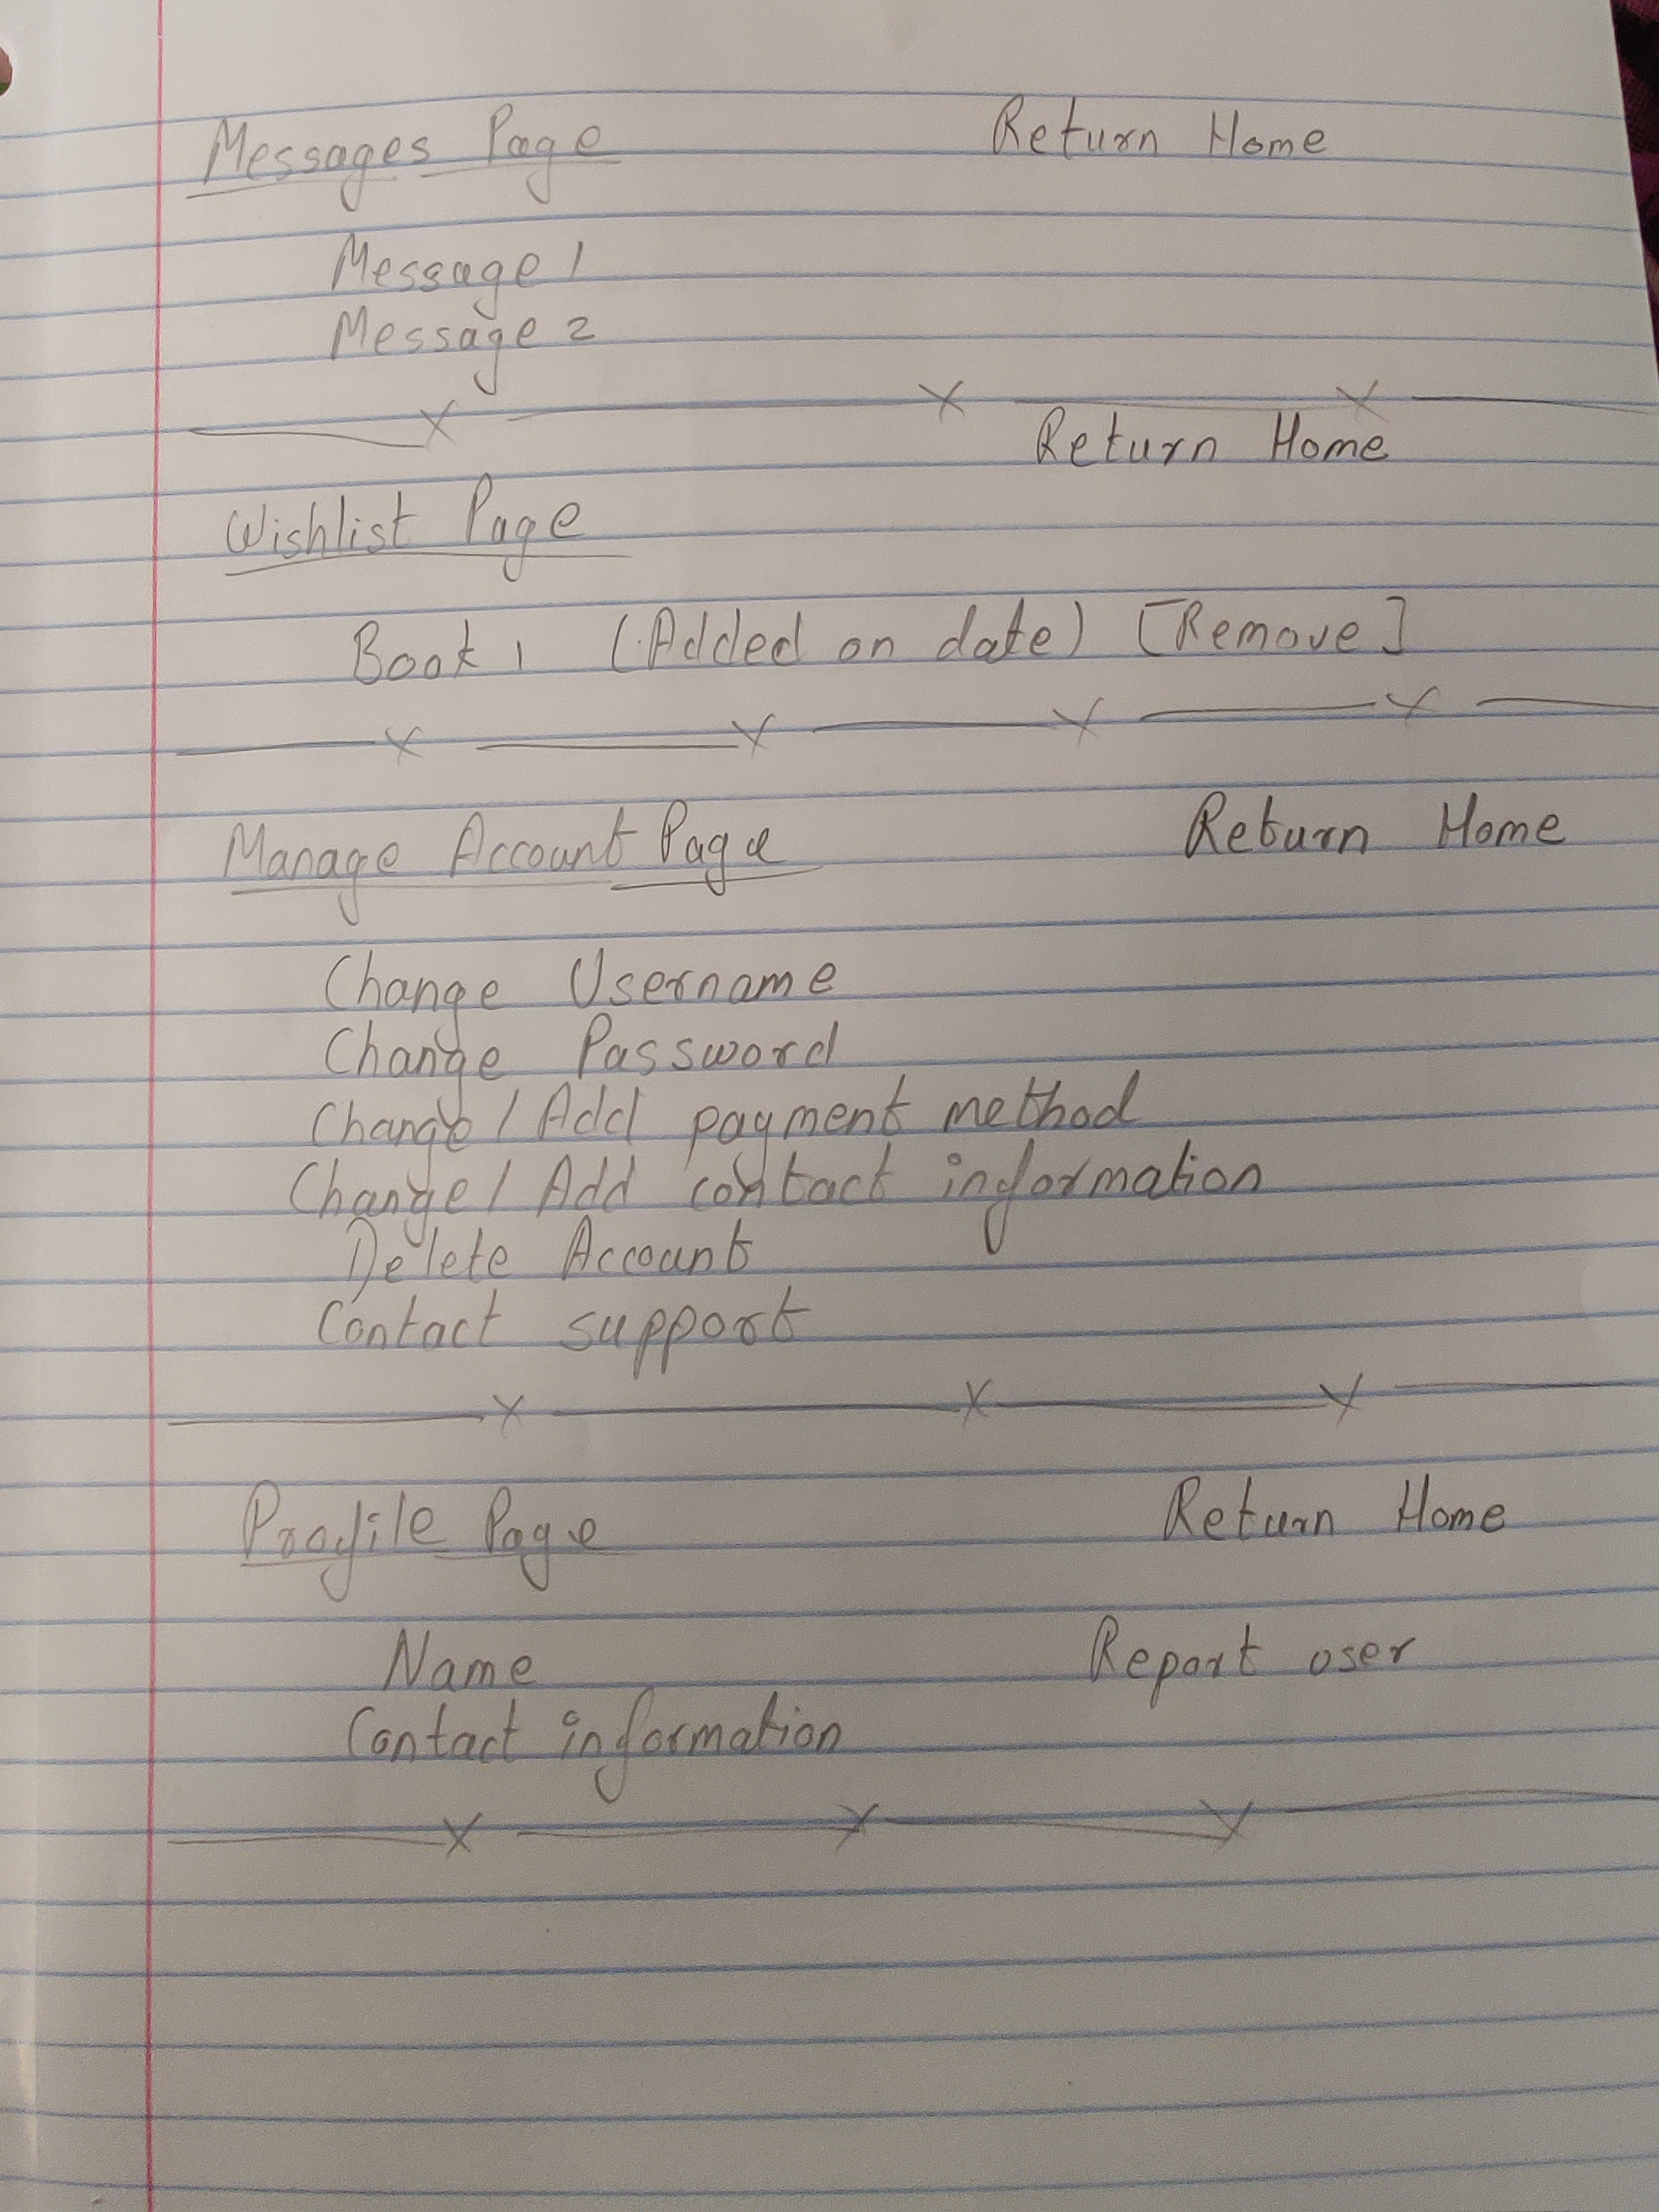 Messages Page Return Home
Message 1
Message 2
Return Home
Wishlist Page
Book 1 (Added on date) [Remove]
Manage Account Page Return Home
Change Username
Change Password
Change / Add payment method
Change / Add contact information
Delete Account
Contact support
Profile Page Return Home
Name Report user
Contact information